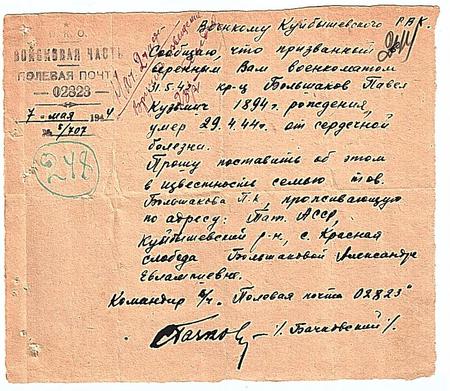 Военкому Куйбышевского РВК.
Н.К.О.
ВОЙСКОВАЯ ЧАСТЬ
ПОЛЕВАЯ ПОЧТА
02823
7 мая 1944
№ 5/707
248
Сообщаю, что призванный
веренным Вам военкоматом
31.5.42 кр-ц Большаков Павел
Кузьмич 1894г. рождения,
умер 29.4.44г. от сердечной
болезни.
Прошу поставить об этом
в известность семью тов.
Большакова П.К, проживающую
по адресу: Тат. АССР,
Куйбышевский р-н, с. Красная
слобода Большаковой Александре
Евлампиевне.
Командир в/ч. Половая почта 02823"
/. Бачковский /.